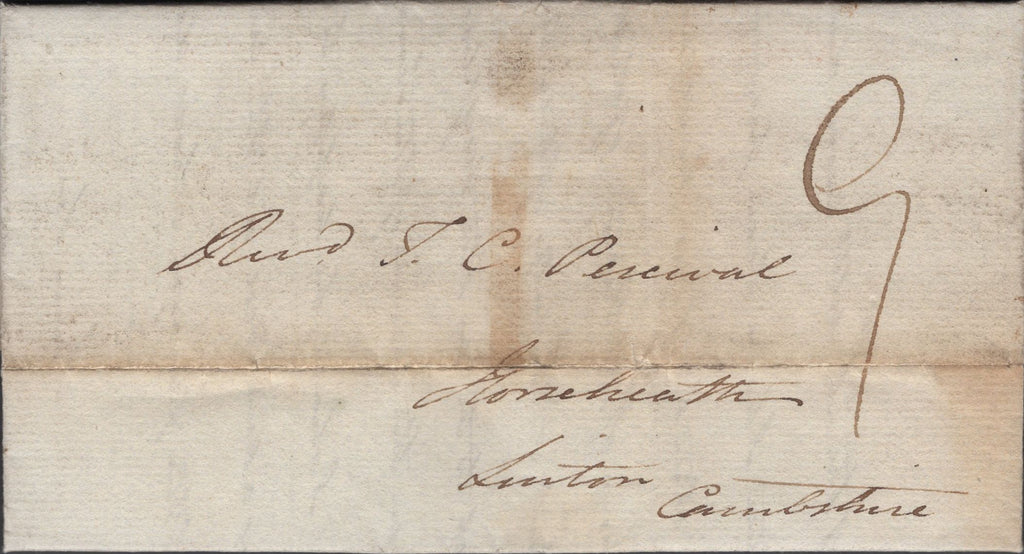 Revd. T. C. Percival
9
Horseheath
Linton
Cambshire